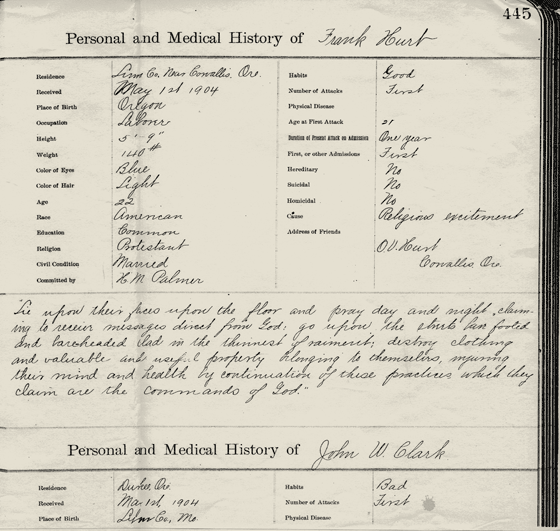 445
Personal and Medical History of Frank Hurt
Residence Linn Co. Near Corvallis, Ore.
Received May 1st 1904
Place of Birth Oregon
Occupation Laborer
Height 5'-9"
Weight 140 #
Color of Eyes Blue
Color of Hair Light
Age 22
Race American
Education Common
Religion Protestant
Civil Condition Married
Committed by H M Palmer
Habits Good
Number of Attacks First
Physical Disease
Age at First Attack 21
Duration of Present Attack on Admission One year
First, or other Admissions First
Hereditary No
Suicidal No
Homicidal No
Cause Religious excitement
Address of Friends
O V Hurt
Corvallis, Ore.
"Lie upon their faces upon the floor and pray day and night, claim-
ing to receive messages direct from God; go upon the streets bare footed
and bareheaded clad in the thinnest of raiment; destroy clothing
and valuable and useful property belonging to themselves, injuring
their mind and health by continuation of these practices which they
claim are the commands of God."
Personal and Medical History of John W. Clark
Residence Ore
Received May 1st, 1904
Place of Birth Co, Mo
Habits Bad
Number of Attacks First
Physical Disease